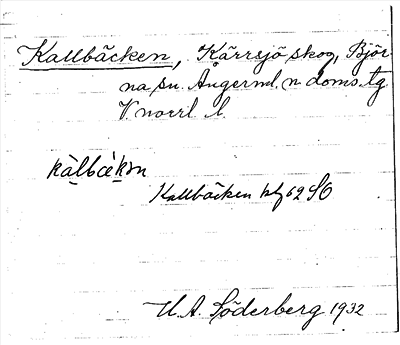 Kallbäcken, Kärrsjö skog, Björ-
na sn. Ångerml. n doms. tg
V. norrl. l.
kàlbækən
Kallbäcken kbl 62 SO
H.A. Söderberg 1932